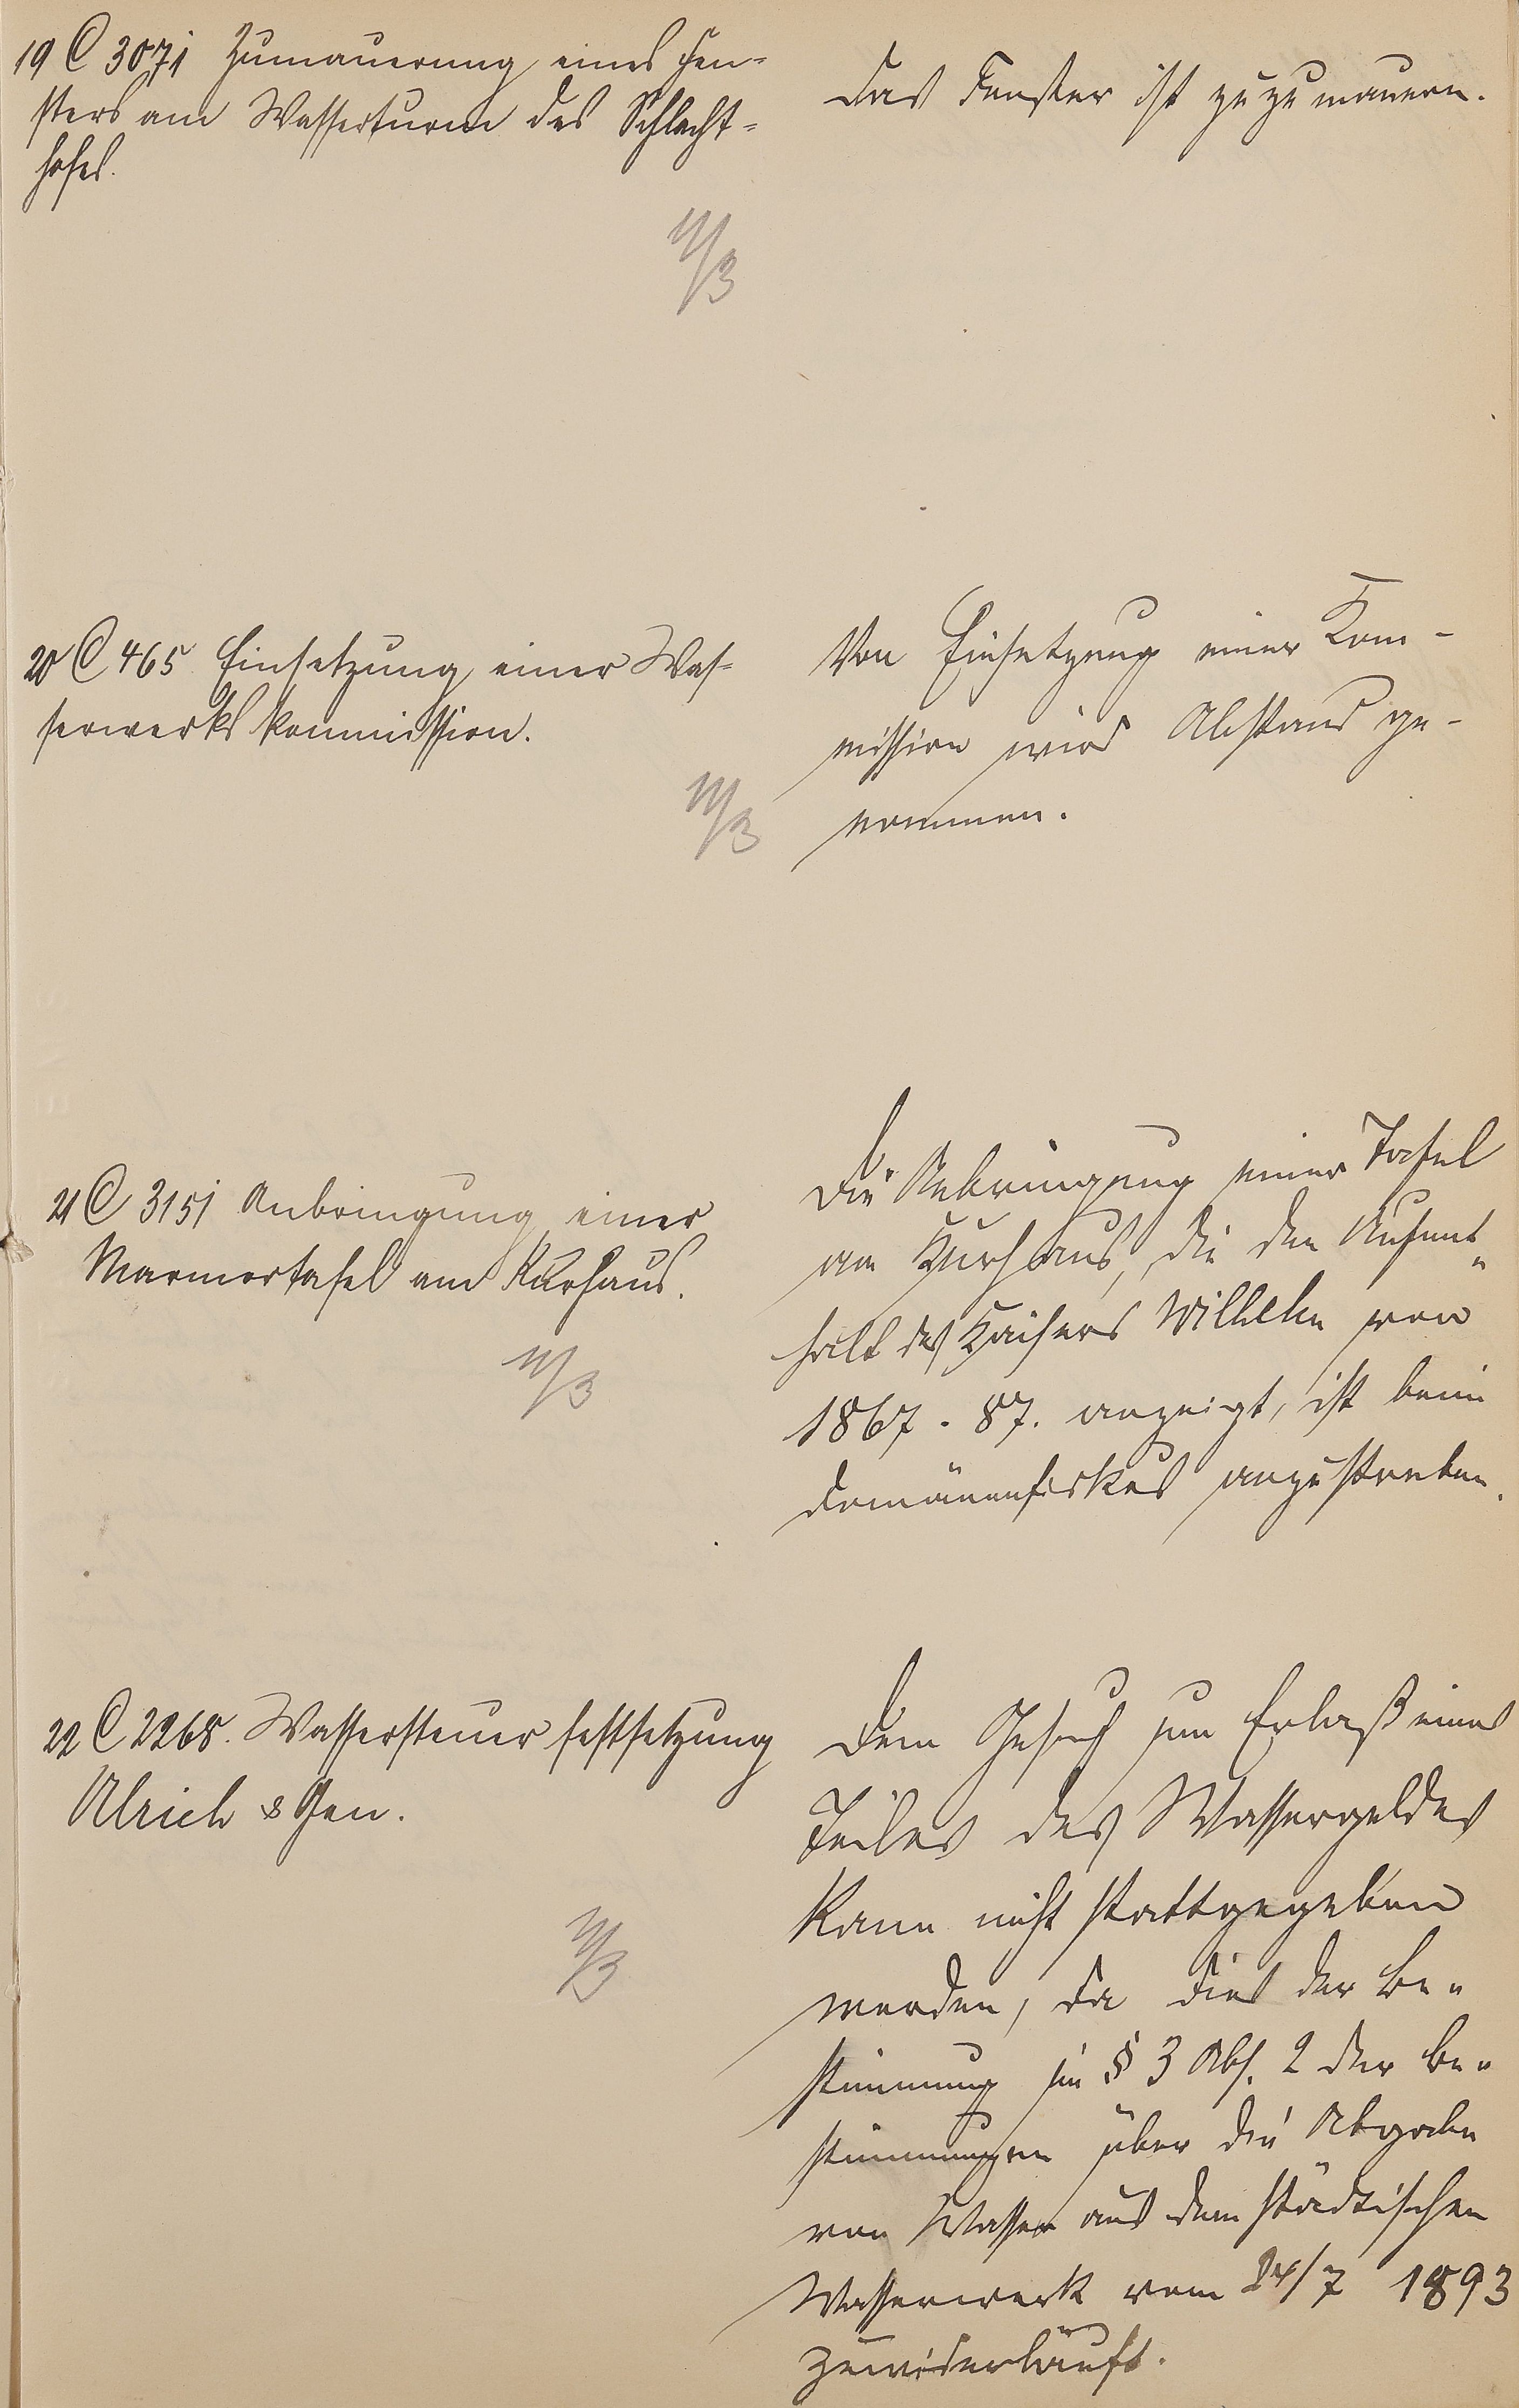 19 C 3071 Zumauerung eines Fen-
sters am Wasserturm des Schlacht-
hofes.
Das Fenster ist zuzumauern.
11/3
20 C 465 Einsetzung einer Was-
serwerks kommission.
11/3
Von Einsetzung einer Kom-
mission wird Abstand ge-
nommen.
21 C 3151 Anbringung einer
Marmortafel am Kurhaus.
11/3
Die Anbringung einer Tafel
am Kurhaus, die den Aufent-
halt des Kaisers Wilhelm von
1867 - 87. anzeigt, ist beim
Domänenfiskus anzustreben.
22 C 2268. Wassersteuer festsetzung
Ulrich & Gen.
11/3
Dem Gesuch um Erlaß eines
Teiles des Wassergeldes
kann nicht stattgegeben
werden, da dies der Be-
stimmung in § 3 Abs. 2 der Be-
stimmungen über die Abgabe
von Wasser aus dem städtischen
Wasserwerk vom /7 1893
zuwiderläuft.